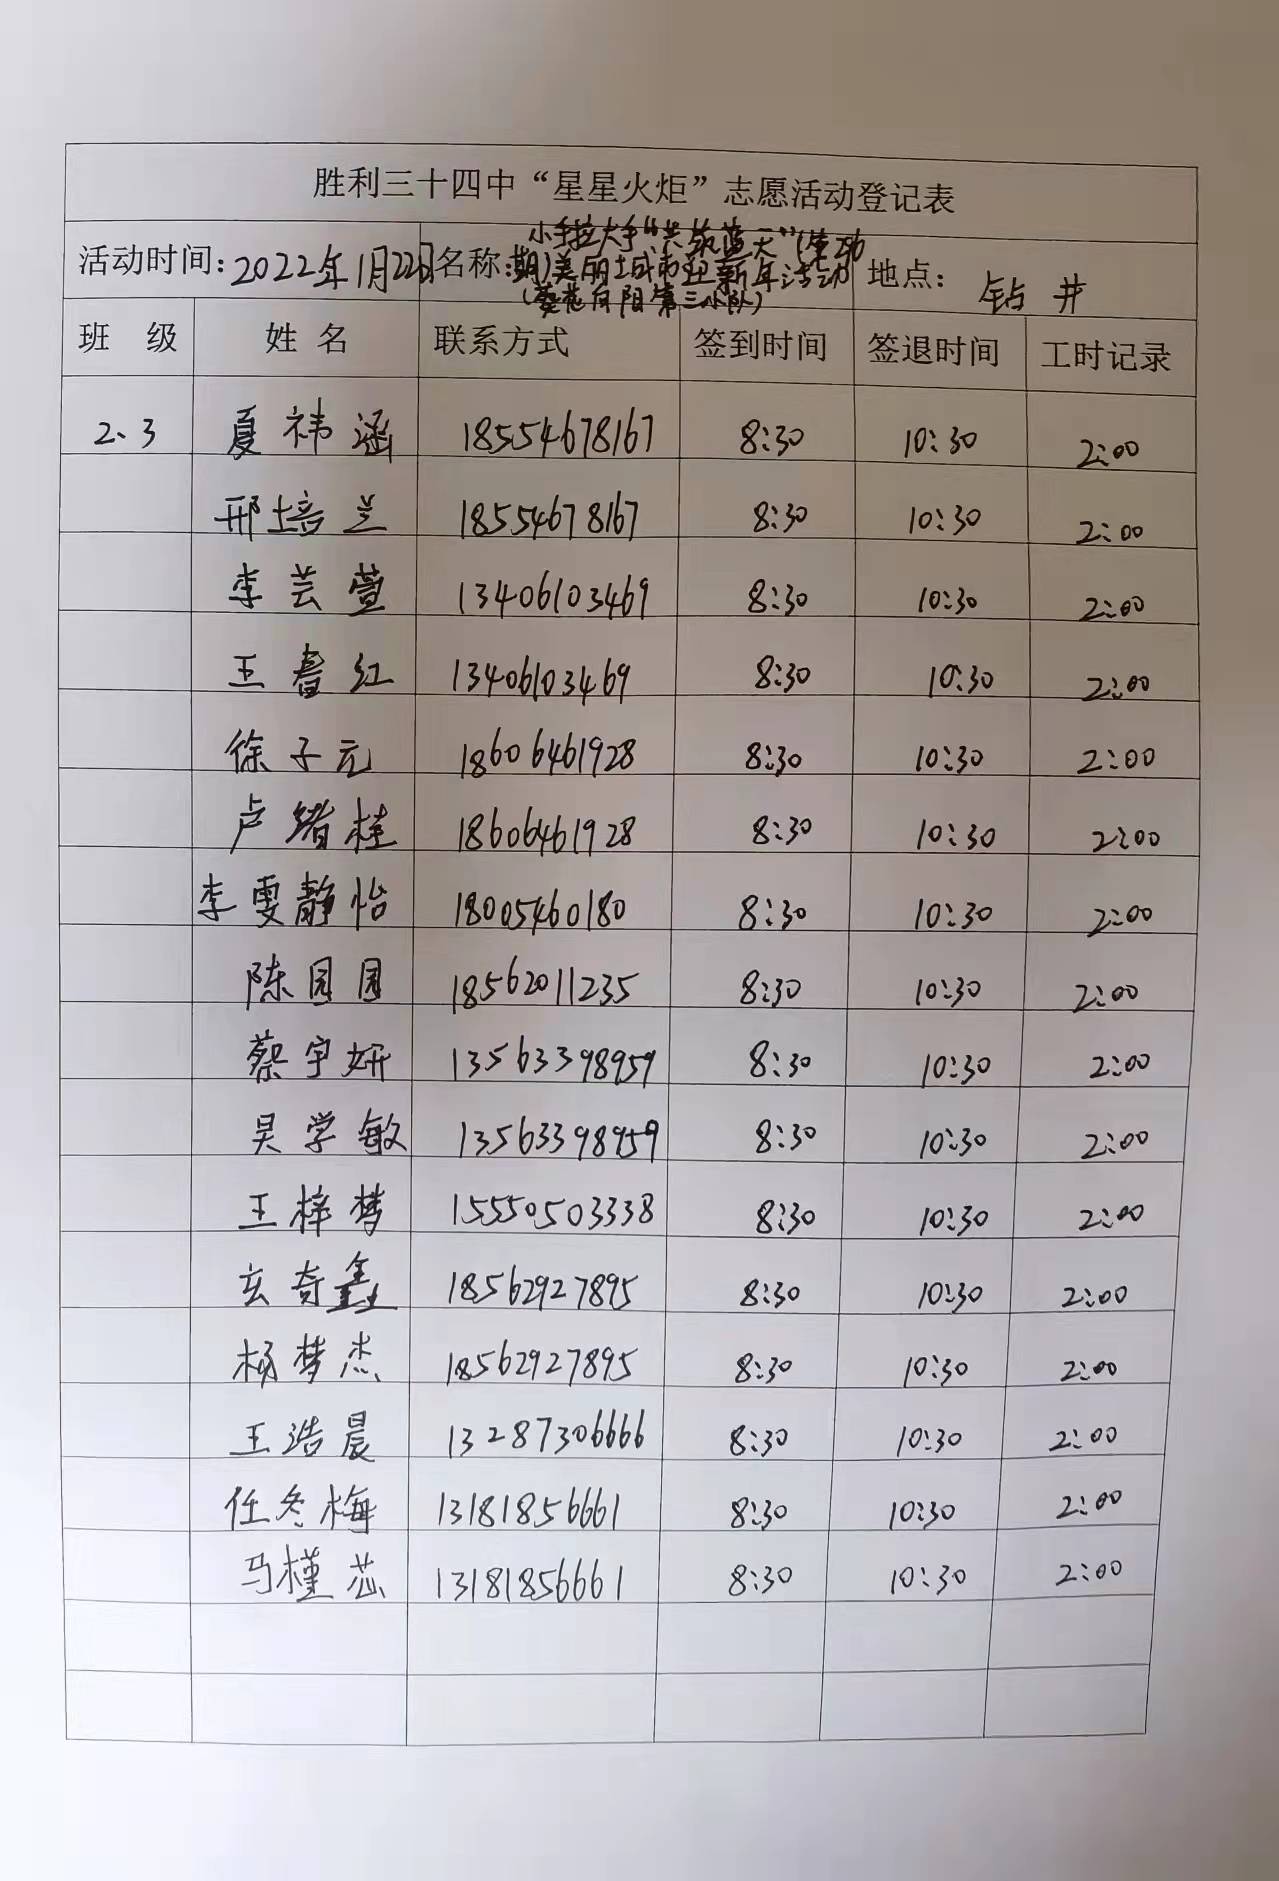 胜利三十四中“星星火炬”志愿活动登记表
活动时间：2022年1月22日 名称：小手拉大手“共筑蓝天”(第功期)美丽城市迎新年活动(葵花向阳第三小队) 地点： 钻井
班 级 姓 名 联系方式 签到时间 签退时间 工时记录
2、3 夏祎涵 18554678167 8:30 10:30 2:00
邢培兰 18554678167 8:30 10:30 2:00
李芸萱 13406103469 8:30 10:30 2:00
王春红 13406103469 8:30 10:30 2:00
徐子元 18606461928 8:30 10:30 2:00
卢绪桂 18606461928 8:30 10:30 2:00
李雯静怡 18005460180 8:30 10:30 2:00
陈园园 18562011235 8:30 10:30 2:00
蔡宇妍 13563398959 8:30 10:30 2:00
吴学敏 13563398959 8:30 10:30 2:00
王梓梦 15550503338 8:30 10:30 2:00
玄奇鑫 18562927895 8:30 10:30 2:00
杨梦杰 18562927895 8:30 10:30 2:00
王浩晨 13287306666 8:30 10:30 2:00
任冬梅 13181856661 8:30 10:30 2:00
马槿芯 13181856661 8:30 10:30 2:00